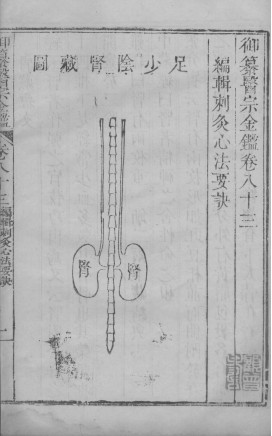 御纂醫宗金鑑卷八十三
編輯刺灸心法要訣
足少陰腎藏圖
腎
腎
御纂醫宗金鑑
卷八十三
編輯刺灸心法要訣
一